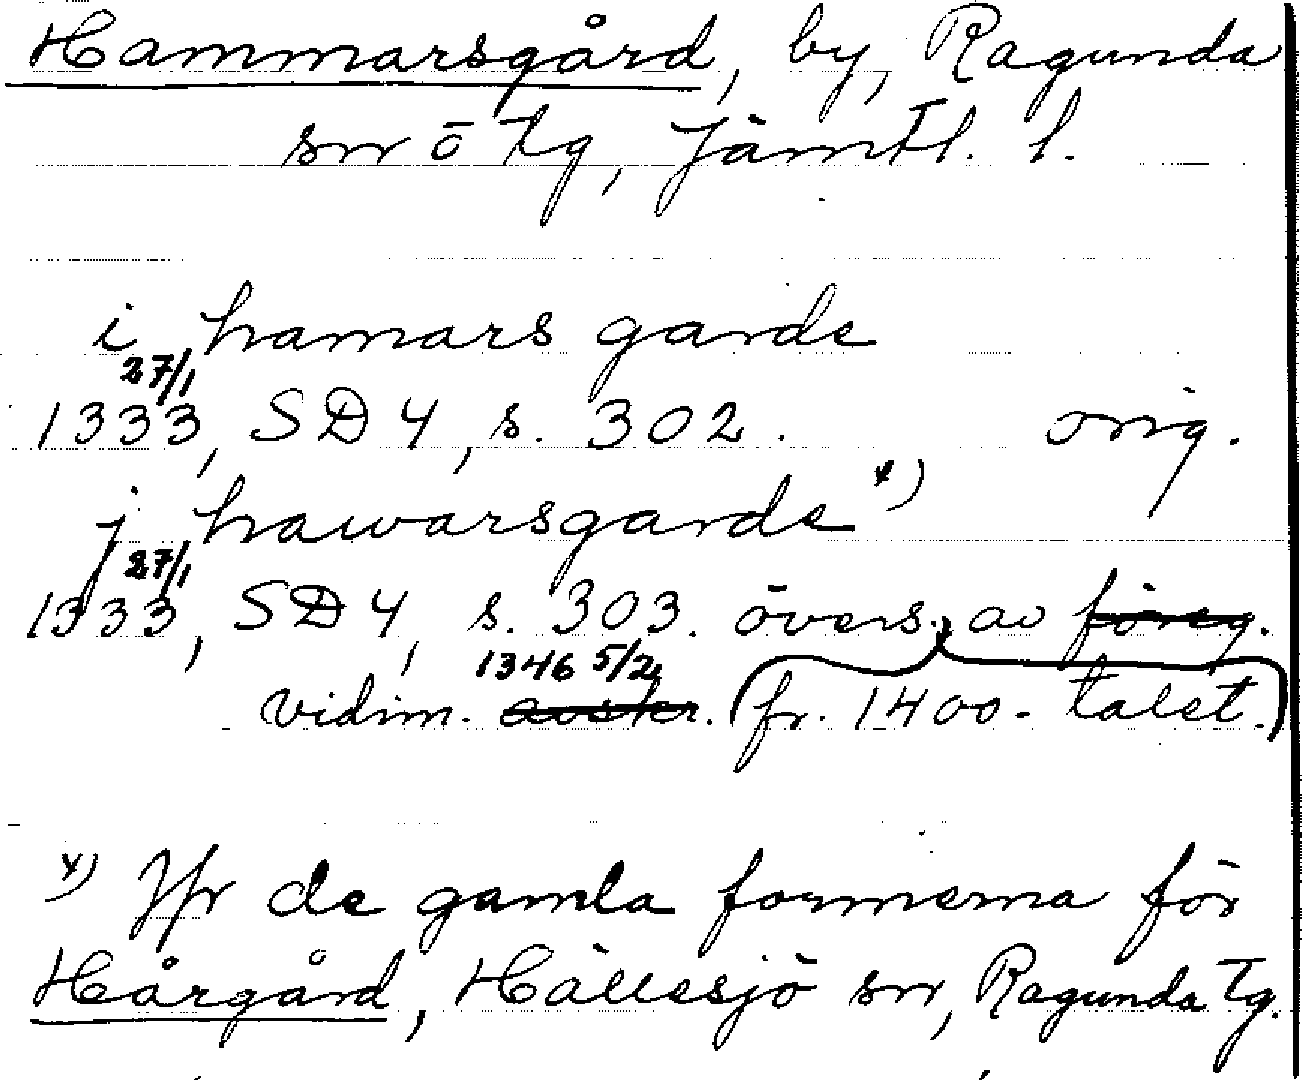 Hammarsgård, by, Ragunda
sn o Tg, Jämtl. l.
i hamars garde
27/1
1333, SD 4, s. 302. orig.
j hawarsgarde x)
27/1
1333, SD 4, s. 303. övers. av föreg.
1346 5/2
vidim. avskr. (fr. 1400-talet.)
x) Jfr de gamla formerna för
Hårgård, Hällesjö sn, Ragunda Tg.